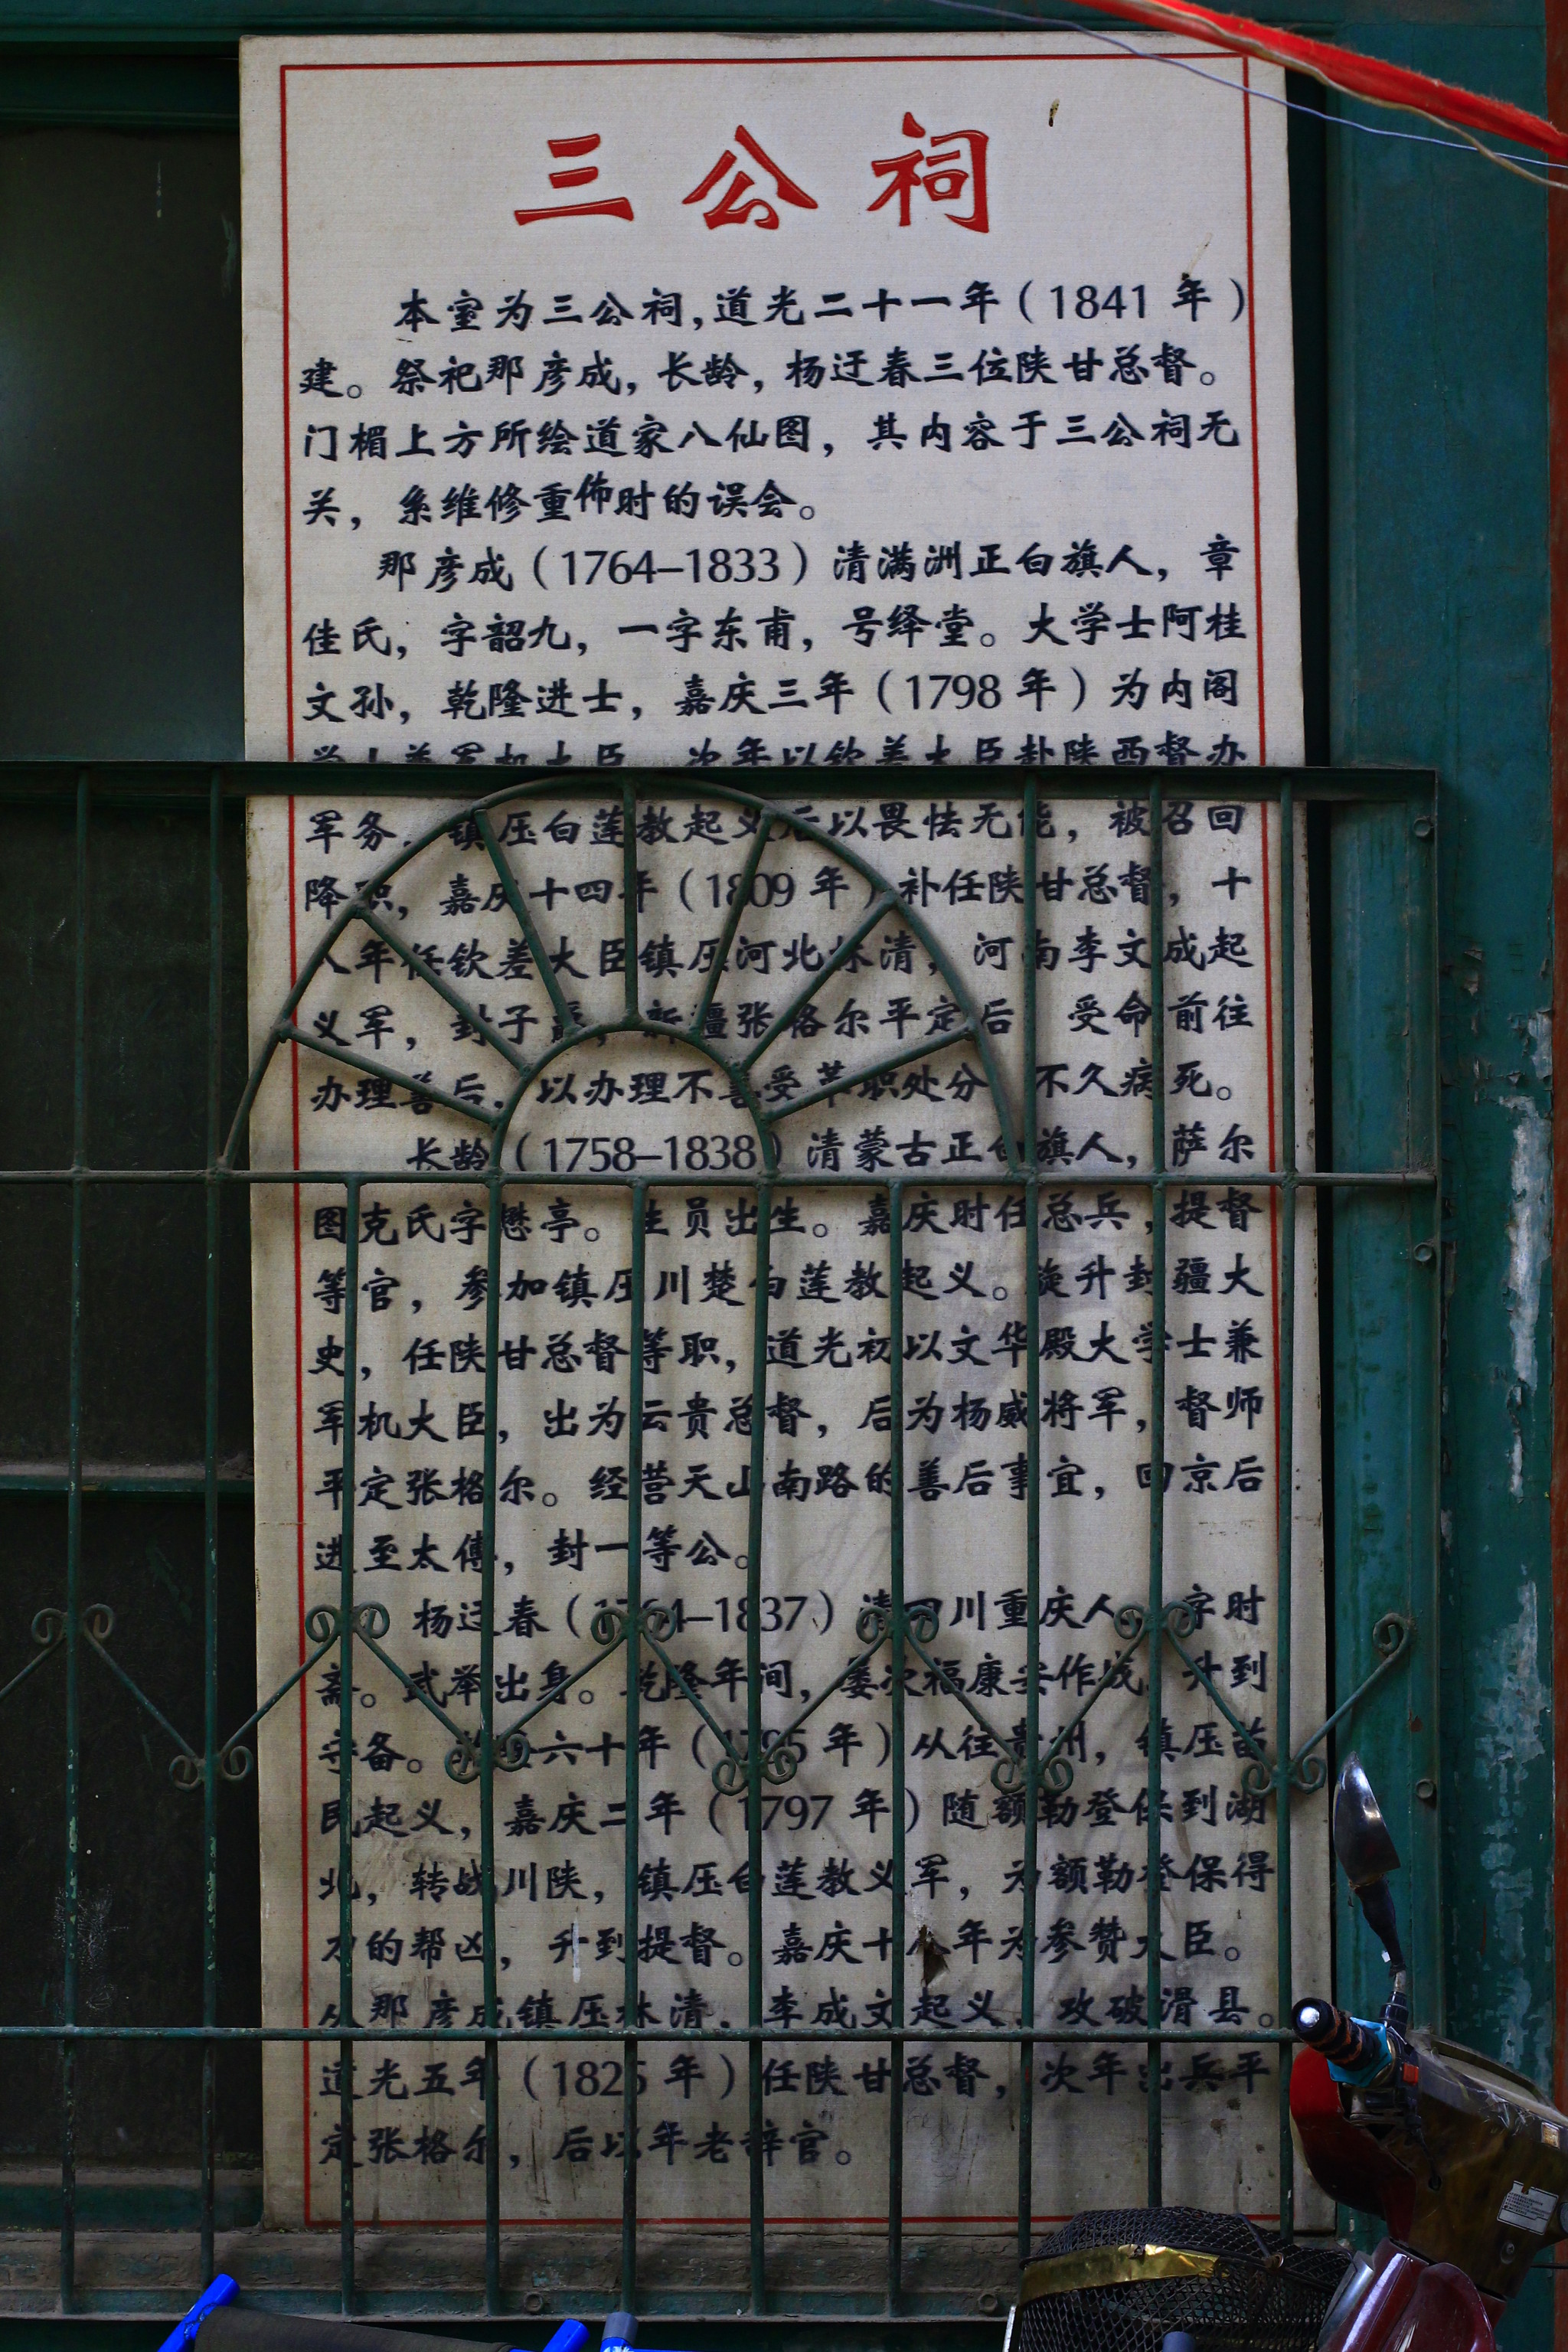 三公祠
本室为三公祠,道光二十一年(1841 年)
建。祭祀那彦成,长龄,杨迂春三位陕甘总督。
门楣上方所绘道家八仙图,其内容于三公祠无
关,系维修重佈时的误会。
那彦成(1764–1833)清满洲正白旗人,章
佳氏,字韶九,一字东甫,号绎堂。大学士阿桂
文孙,乾隆进士,嘉庆三年(1798 年)为内阁
学士兼军机大臣 次年以钦差大臣赴陕西督办
军务.镇压白莲教起义后以畏怯无能,被召回
降职,嘉庆十四年(1809 年)补任陕甘总督,十
八年任钦差大臣镇压河北林清,河南李文成起
义军,封子爵,新疆张格尔平定后 受命前往
办理善后,以办理不善受革职处分 不久病死。
长龄(1758–1838)清蒙古正白旗人,萨尔
图克氏字懋亭。生员出生。嘉庆时任总兵,提督
等官,参加镇压川楚白莲教起义。旋升封疆大
史,任陕甘总督等职,道光初以文华殿大学士兼
军机大臣,出为云贵总督,后为杨威将军,督师
平定张格尔。经营天山南路的善后事宜,回京后
进至太傅,封一等公。
杨迂春(1764–1837)清四川重庆人 字时
斋。武举出身。乾隆年间,屡次福康安作战 升到
守备。乾隆六十年(1795 年)从往贵州,镇压苗
民起义,嘉庆二年(1797 年)随额勒登保到湖
北,转战川陕,镇压白莲教义军,为额勒登保得
力的帮凶,升到提督。嘉庆十八年为参赞大臣。
从那彦成镇压林清,李成文起义,攻破滑县。
道光五年(1825 年)任陕甘总督,次年出兵平
定张格尔,后以年老辞官。